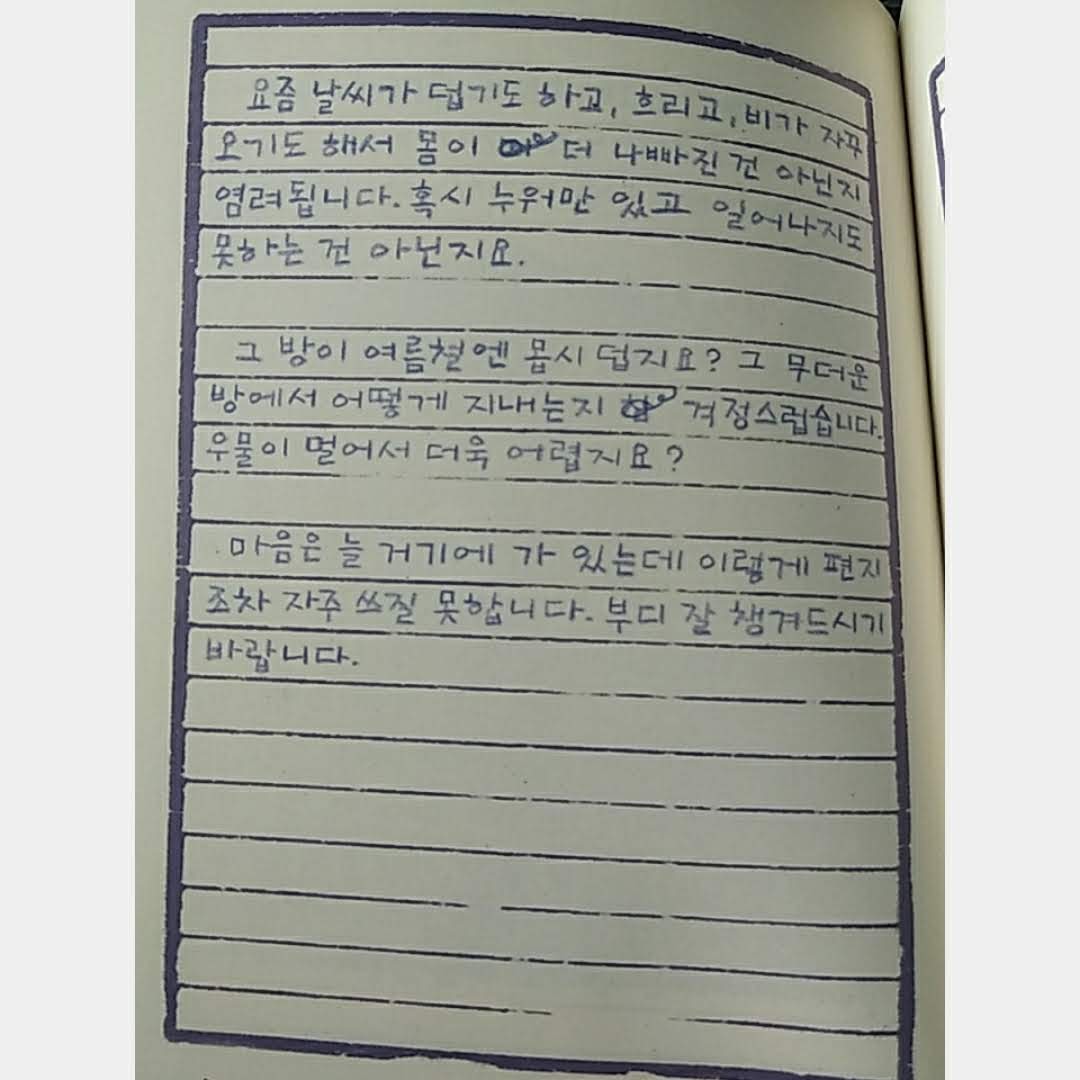 요즘 날씨가 덥기도 하고, 흐리고, 비가 자꾸
오기도 해서 몸이 더 나빠진 건 아닌지
염려됩니다. 혹시 누워만 있고 일어나지도
못하는 건 아닌지요.
그 방이 여름철엔 몹시 덥지요? 그 무더운
방에서 어떻게 지내는지 걱정스럽습니다.
우물이 멀어서 더욱 어렵지요?
마음은 늘 거기에 가 있는데 이렇게 편지
조차 자주 쓰질 못합니다. 부디 잘 챙겨드시기
바랍니다.